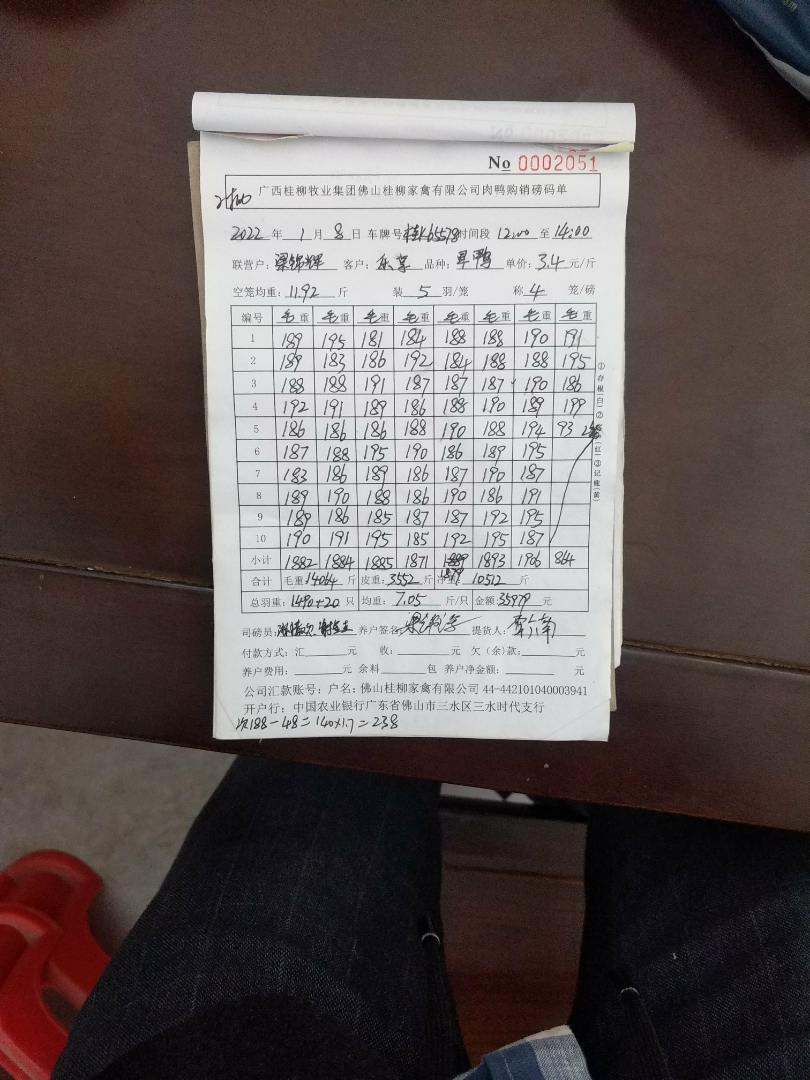 No 0002051
广西桂柳牧业集团佛山桂柳家禽有限公司肉鸭购销磅码单
2022 年 1 月 8 日 车牌号 桂K65578 时间段 12:00 至 14:00
联营户: 梁锦辉 客户: 乐享 品种: 旱鸭 单价: 3.4 元/斤
空笼均重: 11.92 斤 装 5 羽/笼 称 4 笼/磅
编号 毛重 毛重 毛重 毛重 毛重 毛重 毛重 毛重
1 189 195 181 184 188 188 190 191
2 189 183 186 192 184 188 188 195
3 188 188 191 187 187 187 190 186
4 192 191 189 186 188 190 189 199
5 186 186 186 188 190 188 194 93
6 187 188 195 190 186 189 195
7 183 186 189 186 187 190 187
8 189 190 188 186 190 186 191
9 189 186 185 187 187 192 195
10 190 191 195 185 192 195 187
小计 1882 1884 1885 1871 1879 1893 1906 864
合计 毛重 14064 斤 皮重: 3552 斤 净重: 10512 斤
总羽重: 1490+20 只 均重: 7.05 斤/只 金额: 35979 元
司磅员: 养户签名 提货人:
付款方式: 汇 元 收: 元 欠(余)款: 元
养户费用: 元 余料 包 养户净金额: 元
公司汇款账号: 户名: 佛山桂柳家禽有限公司 44-442101040003941
开户行: 中国农业银行广东省佛山市三水区三水时代支行
次188-48=140×1.7=238
①存根(白)②
(红)③记账(黄)